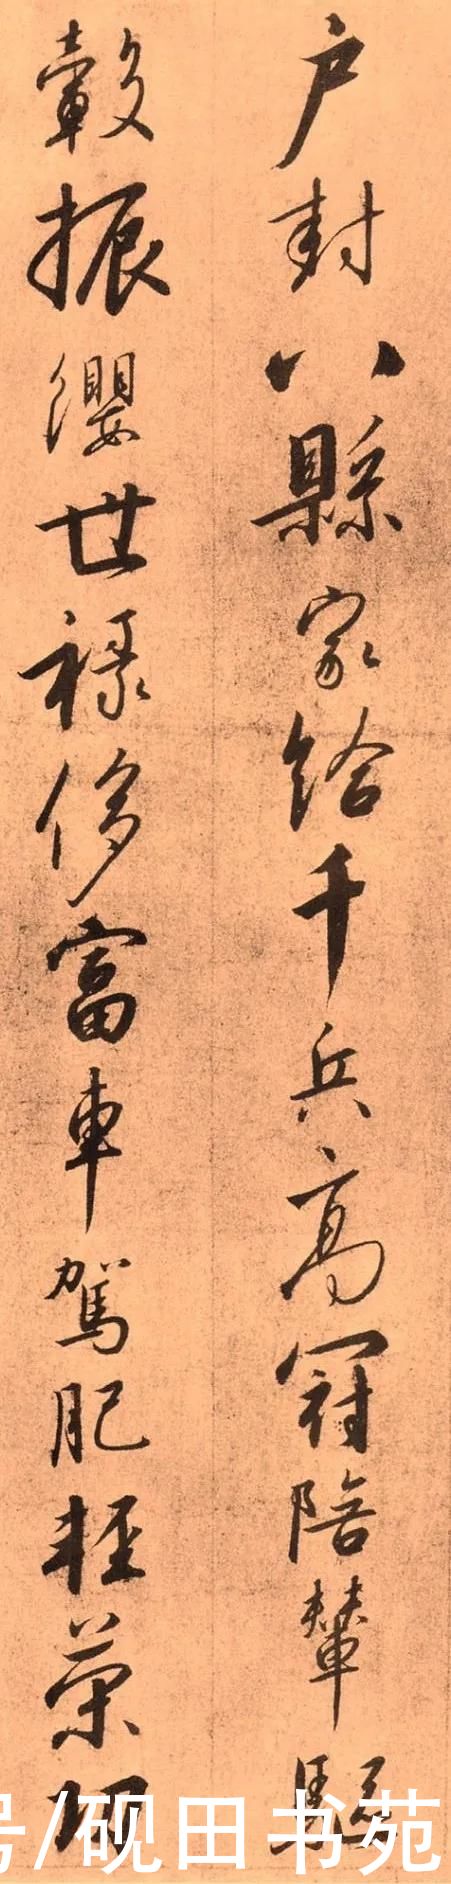 户封八縣家給千兵高冠陪輦驅
轂振纓世祿侈富車駕肥輕策功
号/砚田书苑